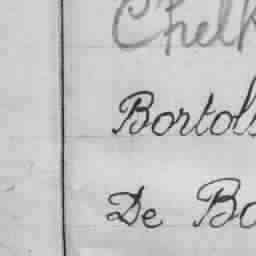 Chelk
Bortols
De Bo